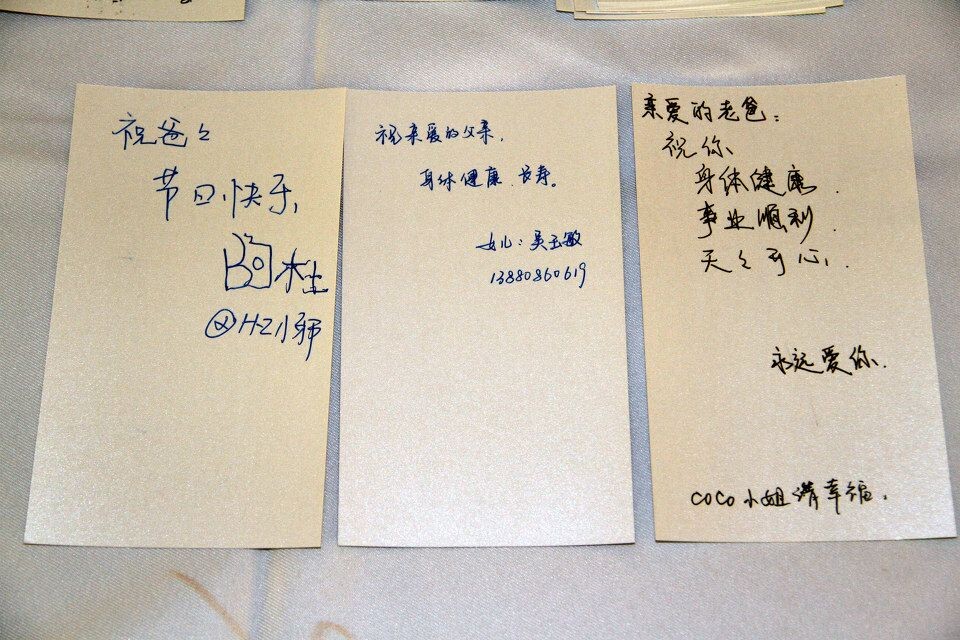 祝爸々
节日快乐
@HZ小郭
祝亲爱的父亲,
身体健康、长寿。
女儿:吴玉敏
13880860619
亲爱的老爸:
祝你
身体健康.
事业顺利.
天々开心.
永远爱你.
COCO小姐请幸福.